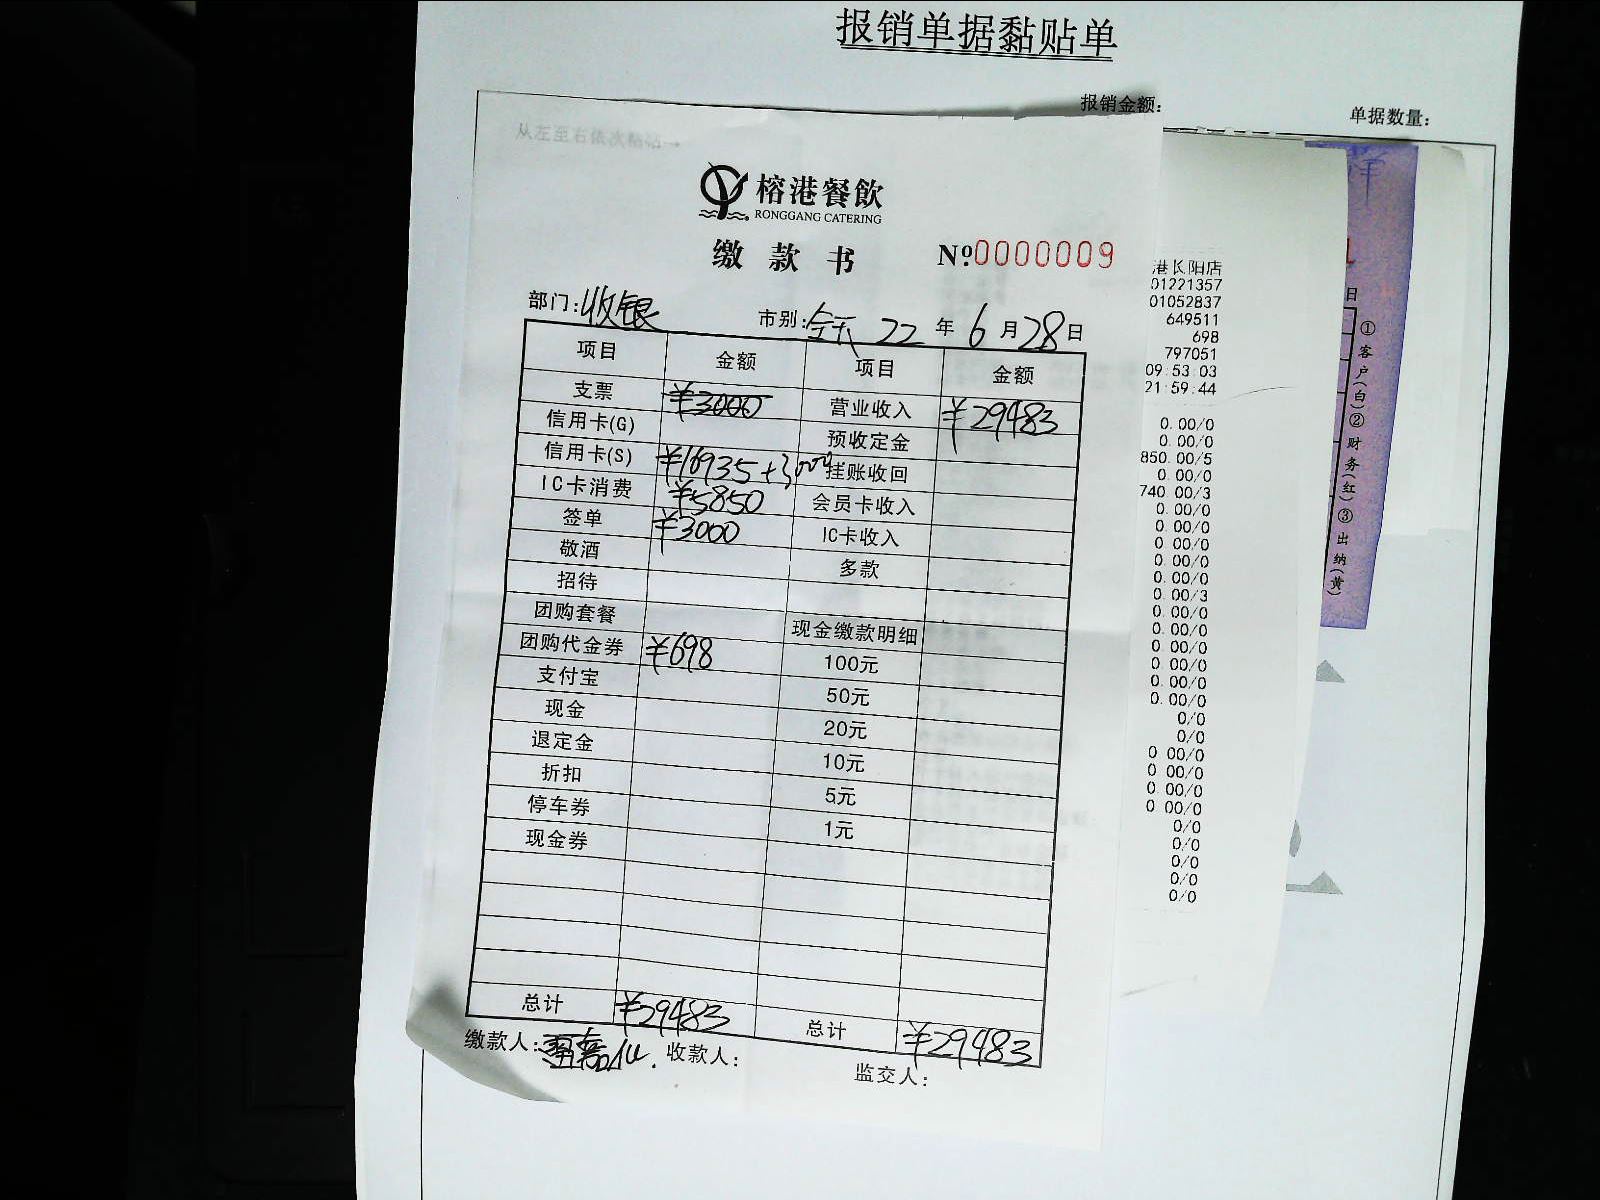 报销单据黏贴单
报销金额:
单据数量:
从左至右依次粘贴→
榕港餐飲
RONGGANG CATERING
缴款书 Nº:0000009
部门:收银 市别:全天 22年6月28日
项目 金额 项目 金额
支票 ¥3000 营业收入 ¥29483
信用卡(G) 预收定金
信用卡(S) ¥16935+3000 挂账收回
IC卡消费 ¥5850 会员卡收入
签单 ¥3000 IC卡收入
敬酒 多款
招待
团购套餐 现金缴款明细
团购代金券 ¥698 100元
支付宝 50元
现金 20元
退定金 10元
折扣 5元
停车券 1元
现金券
总计 ¥29483 总计 ¥29483
缴款人: 收款人: 监交人:
港长阳店
01221357
01052837
649511
698
797051
09:53:03
21:59:44
0.00/0
0.00/0
850.00/5
0.00/0
740.00/3
0.00/0
0.00/0
0.00/0
0.00/0
0.00/0
0.00/3
0.00/0
0.00/0
0.00/0
0.00/0
0.00/0
0.00/0
0/0
0/0
0.00/0
0.00/0
0.00/0
0.00/0
0/0
0/0
0/0
0/0
0/0
日
①客户(白)②财务(红)③出纳(黄)